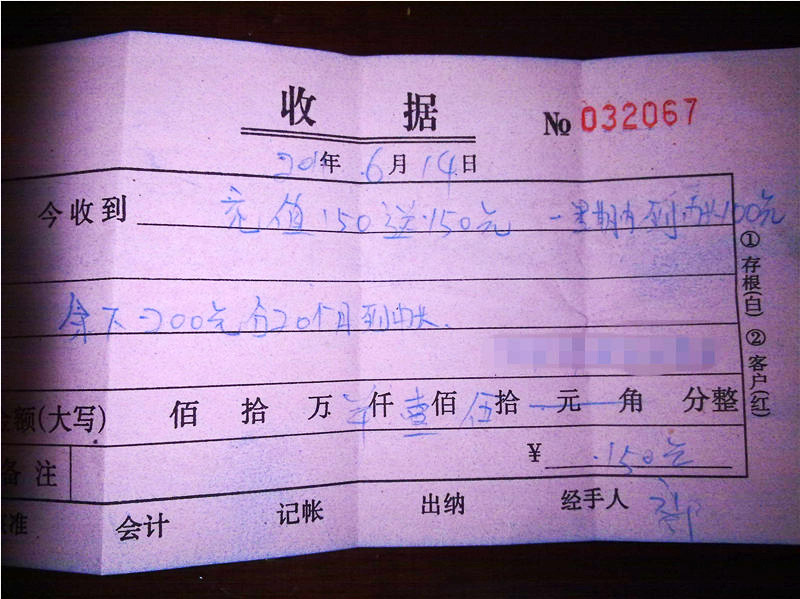 收 据
№ 032067
201 年 6 月 14 日
今收到 充值150送150元 一星期内到帐100元
余下200元分20个月到帐.
金额(大写) 佰 拾 万 仟 壹 佰 伍 拾 元 角 分整
备注 ¥ 150元
会计 记帐 出纳 经手人
①存根(白) ②客户(红)